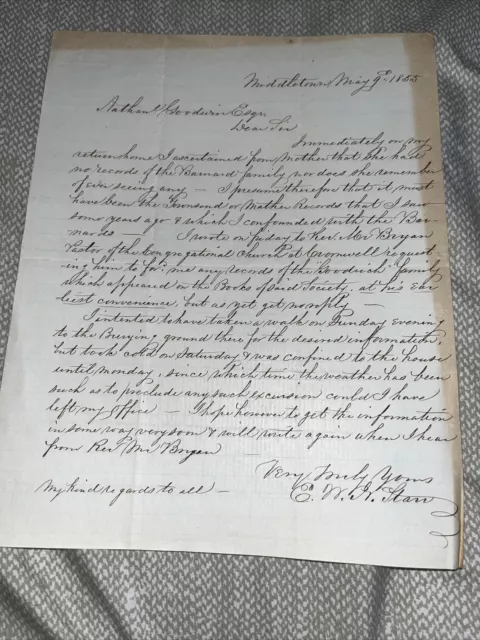 Middletown May 9th 1855
Nathanl Goodwin Esqr
Dear Sir
Immediately on my
return home I ascertained from Mother that she had
no records of the Barnard family, nor does she remember
of ever seeing any — I presume therefore that it must
have been the Townsend or Mather Records that I saw
some years ago & which I confounded with the Bar-
nards — I wrote on friday to Rev. Mr Bryan
Pastor of the Congregational Church at Cromwell request-
ing him to for'd me any records of the "Goodrich" family
which appeared on the Books of said Society, at his Ear-
liest convenience, but as yet get no reply —
I intented to have taken a walk on Sunday Evening
to the Burying ground there for the desired information,
but took cold on Saturday & was confined to the house
until Monday, since which time the weather has been
such as to preclude any such excursion could I have
left my Office — I hope however to get the information
in some way very soon & will write again when I hear
from Rev Mr Bryan —
Very Truly Yours
E. W. N. Starr
My kind regards to all —